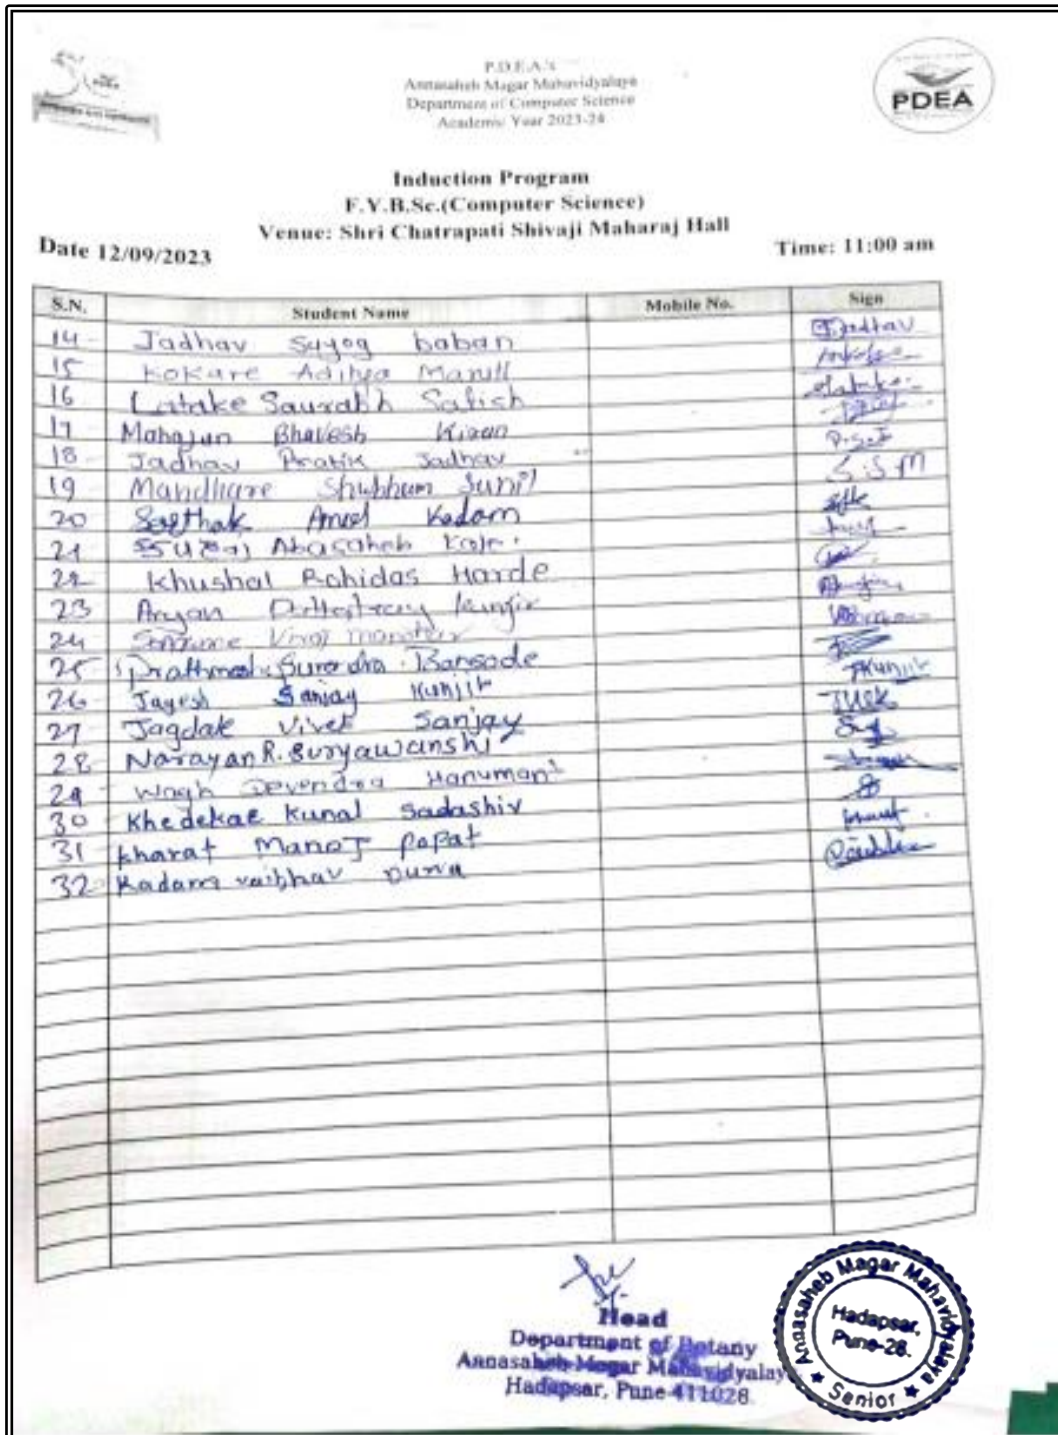 PDEA
P.D.E.A.'s
Annasaheb Magar Mahavidyalaya
Department of Computer Science
Academic Year 2023-24
PDEA
Induction Program
F.Y.B.Sc.(Computer Science)
Venue: Shri Chatrapati Shivaji Maharaj Hall
Date 12/09/2023 Time: 11:00 am
S.N. Student Name Mobile No. Sign
14 Jadhav Suyog baban Jadhav
15 Kokare Aditya
16 Latake Saurabh Satish
17 Mahajan Bhavesh Kiran
18 Jadhav Pratik Jadhav
19 Mandhare Shubham Sunil S.S.M
20 Sarthak Kadam
21 Abasaheb
22 Khushal Rohidas Harde
23 Aryan Kunjir
24
25 Surendra Bansode
26 Jayesh Sanjay Kunjir JKunjir
27 Jagdale Vivek Sanjay
28 Narayan R. Suryawanshi
29 Wagh Devendra Hanumant
30 Khedekar Kunal Sadashiv
31 Kharat Manoj Popat
32 Kadam vaibhav
Head
Department of Botany
Annasaheb Magar Mahavidyalay
Hadapsar, Pune-411028.
Annasaheb Magar Mahavidyalaya
Hadapsar,
Pune-28.
★ Senior ★